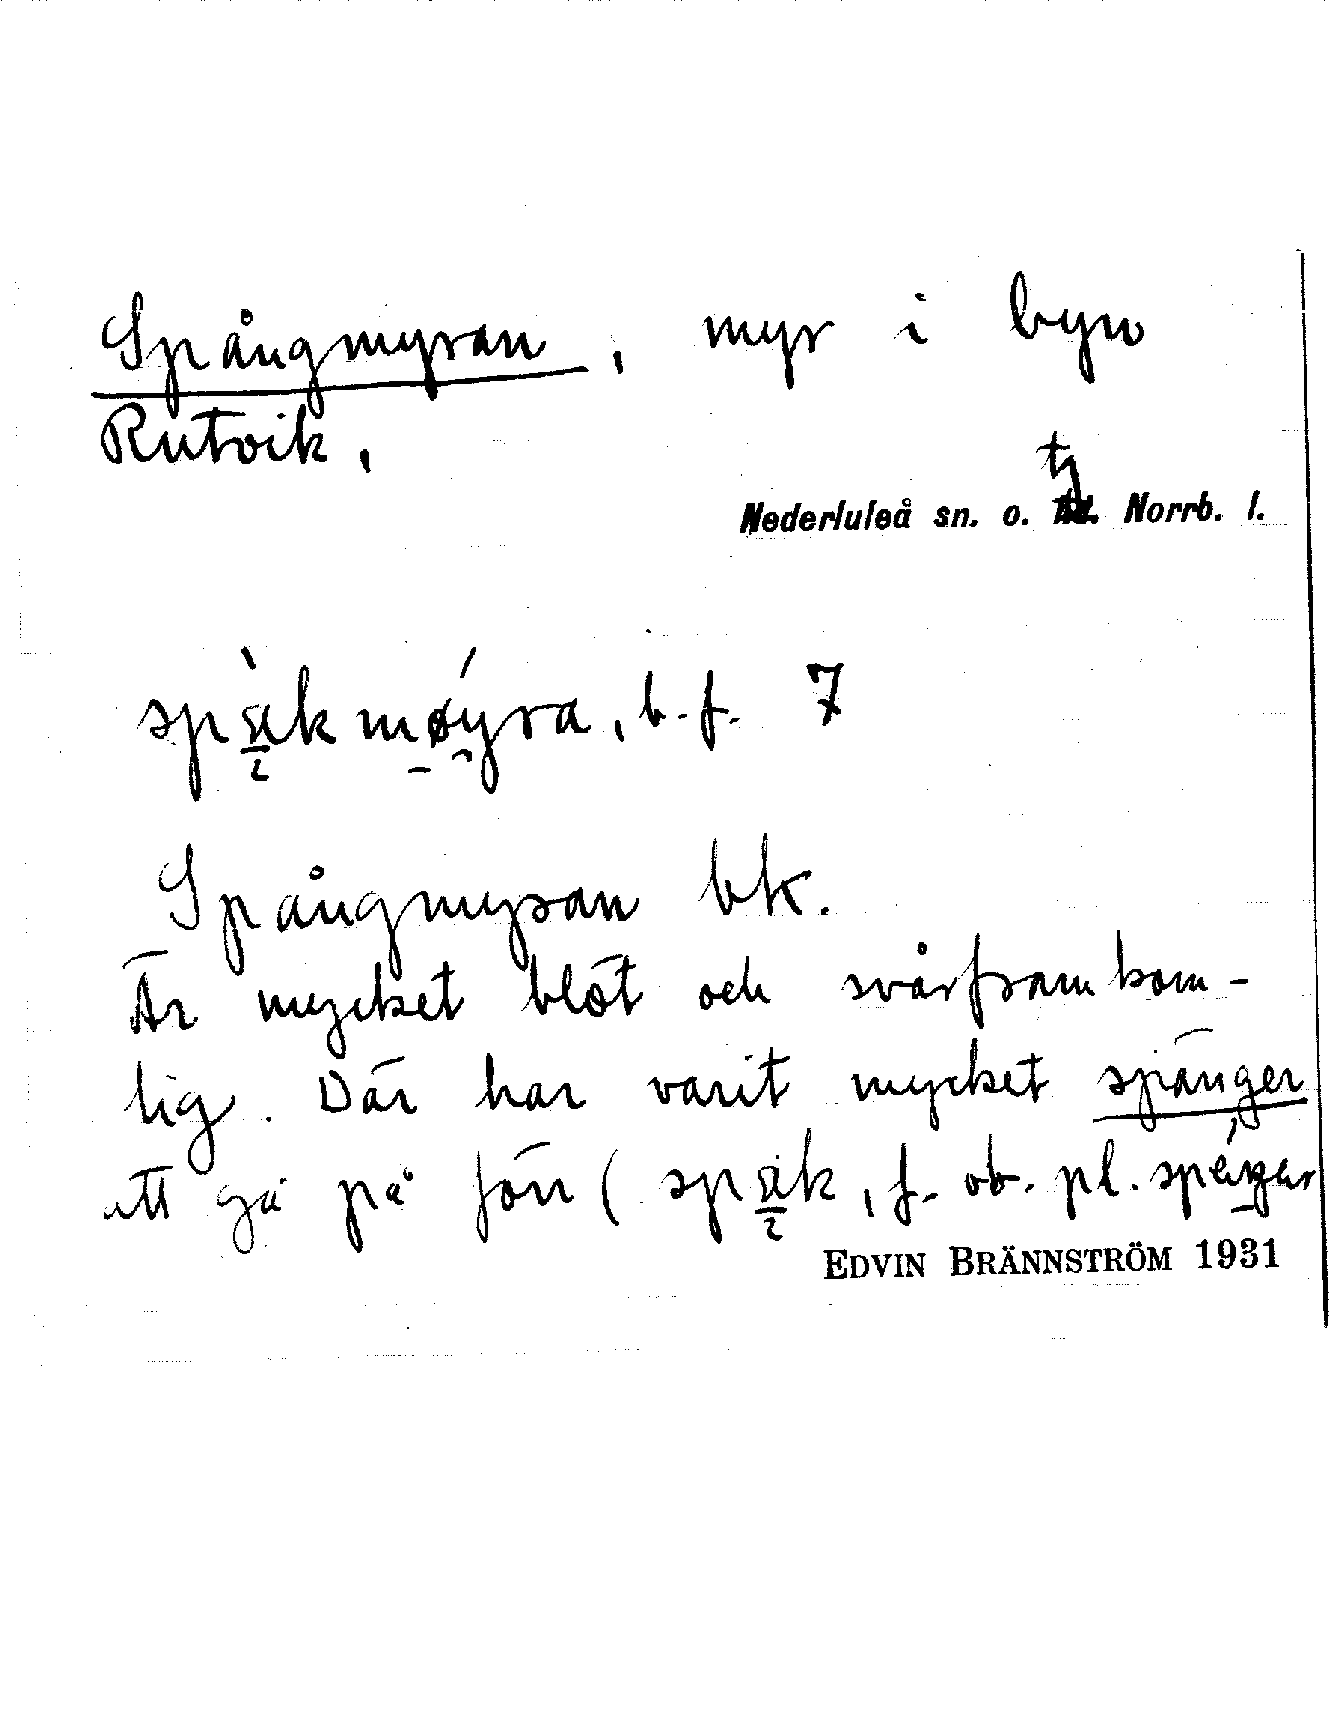 Spångmyran, myr i byn
Rutvik,
tg
Nederluleå sn. o. Norrb. l.
b.f. 7
Spångmyran bk.
Är mycket blöt och svårframkom-
lig. Där har varit mycket spänger
att gå på förr ( f. ob. pl.
EDVIN BRÄNNSTRÖM 1931